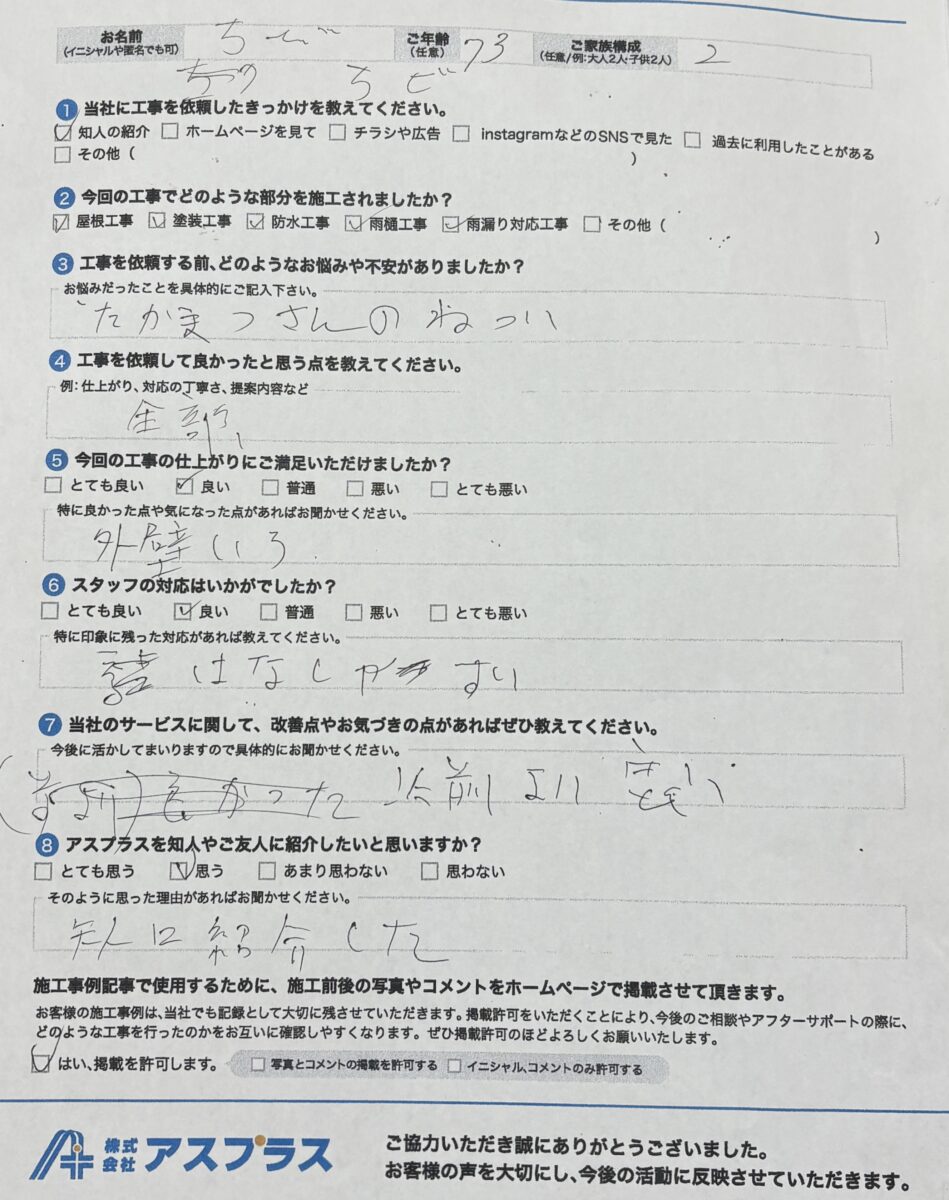 お名前
(イニシャルや匿名でも可)
ご年齢
(任意)
73
ご家族構成
(任意/例:大人2人・子供2人)
2
1 当社に工事を依頼したきっかけを教えてください。
知人の紹介 ホームページを見て チラシや広告 instagramなどのSNSで見た 過去に利用したことがある
その他( )
2 今回の工事でどのような部分を施工されましたか?
屋根工事 塗装工事 防水工事 雨樋工事 雨漏り対応工事 その他( )
3 工事を依頼する前、どのようなお悩みや不安がありましたか?
お悩みだったことを具体的にご記入下さい。
たかまつさんのねつい
4 工事を依頼して良かったと思う点を教えてください。
例:仕上がり、対応の丁寧さ、提案内容など
全部
5 今回の工事の仕上がりにご満足いただけましたか?
とても良い 良い 普通 悪い とても悪い
特に良かった点や気になった点があればお聞かせください。
外壁いろ
6 スタッフの対応はいかがでしたか?
とても良い 良い 普通 悪い とても悪い
特に印象に残った対応があれば教えてください。
はなしが すい
7 当社のサービスに関して、改善点やお気づきの点があればぜひ教えてください。
今後に活かしてまいりますので具体的にお聞かせください。
かった 以前より
8 アスプラスを知人やご友人に紹介したいと思いますか?
とても思う 思う あまり思わない 思わない
そのように思った理由があればお聞かせください。
知人に紹介した
施工事例記事で使用するために、施工前後の写真やコメントをホームページで掲載させて頂きます。
お客様の施工事例は、当社でも記録として大切に残させていただきます。掲載許可をいただくことにより、今後のご相談やアフターサポートの際に、
どのような工事を行ったのかをお互いに確認しやすくなります。ぜひ掲載許可のほどよろしくお願いいたします。
はい、掲載を許可します。 写真とコメントの掲載を許可する イニシャル、コメントのみ許可する
株式会社 アスプラス
ご協力いただき誠にありがとうございました。
お客様の声を大切にし、今後の活動に反映させていただきます。